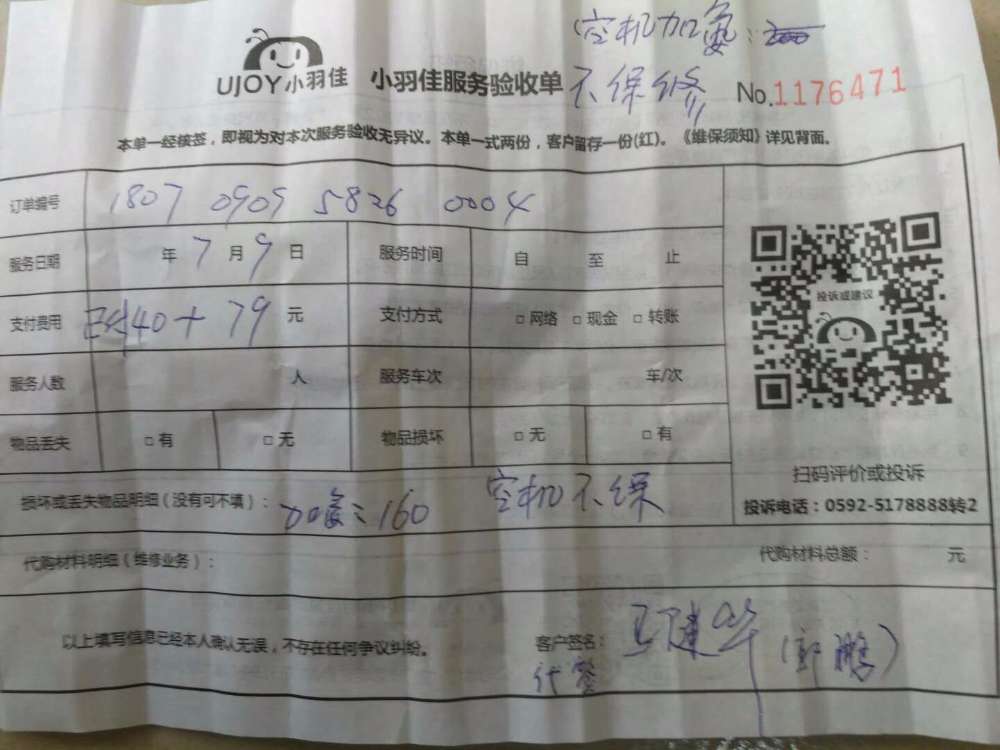 空机加氨：200
UJOY小羽佳 小羽佳服务验收单 不保修 No.1176471
本单一经核签，即视为对本次服务验收无异议。本单一式两份，客户留存一份(红)。《维保须知》详见背面。
订单编号 1807 0909 5826 0004
服务日期 年 7 月 9 日 服务时间 自 至 止
投诉或建议
支付费用 已付40+79 元 支付方式 □网络 □现金 □转账
服务人数 人 服务车次 车/次
物品丢失 □有 □无 物品损坏 □无 □有
扫码评价或投诉
损坏或丢失物品明细（没有可不填）： 160 空机不保
投诉电话：0592-5178888转2
代购材料明细（维修业务）： 代购材料总额： 元
以上填写信息已经本人确认无误，不存在任何争议纠纷。 客户签名： 王建华（郭鹏）
代签